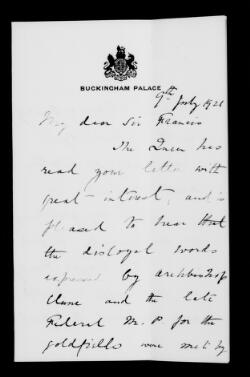 BUCKINGHAM PALACE
9th July 1921
My dear Sir Francis
The Queen has
read your letter with
great interest, and is
pleased to hear that
the disloyal words
expressed by Archbishop
Clune and the late
Federal M.P. for the
goldfields were met by